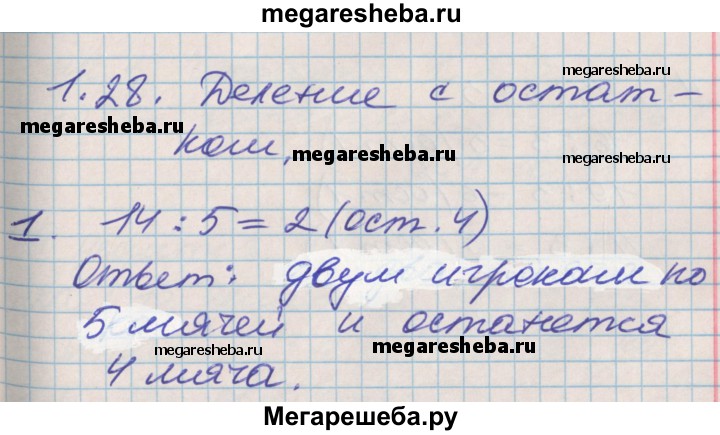 megaresheba.ru
megaresheba.ru
1.28. Деление с остат-
megaresheba.ru
ком,
megaresheba.ru
megaresheba.ru
1. 14 : 5 = 2 (ост. 4)
Ответ: двум игрокам по
5 мячей и останется
megaresheba.ru
megaresheba.ru
megaresheba.ru
4 мяча.
Мегарешеба.ру